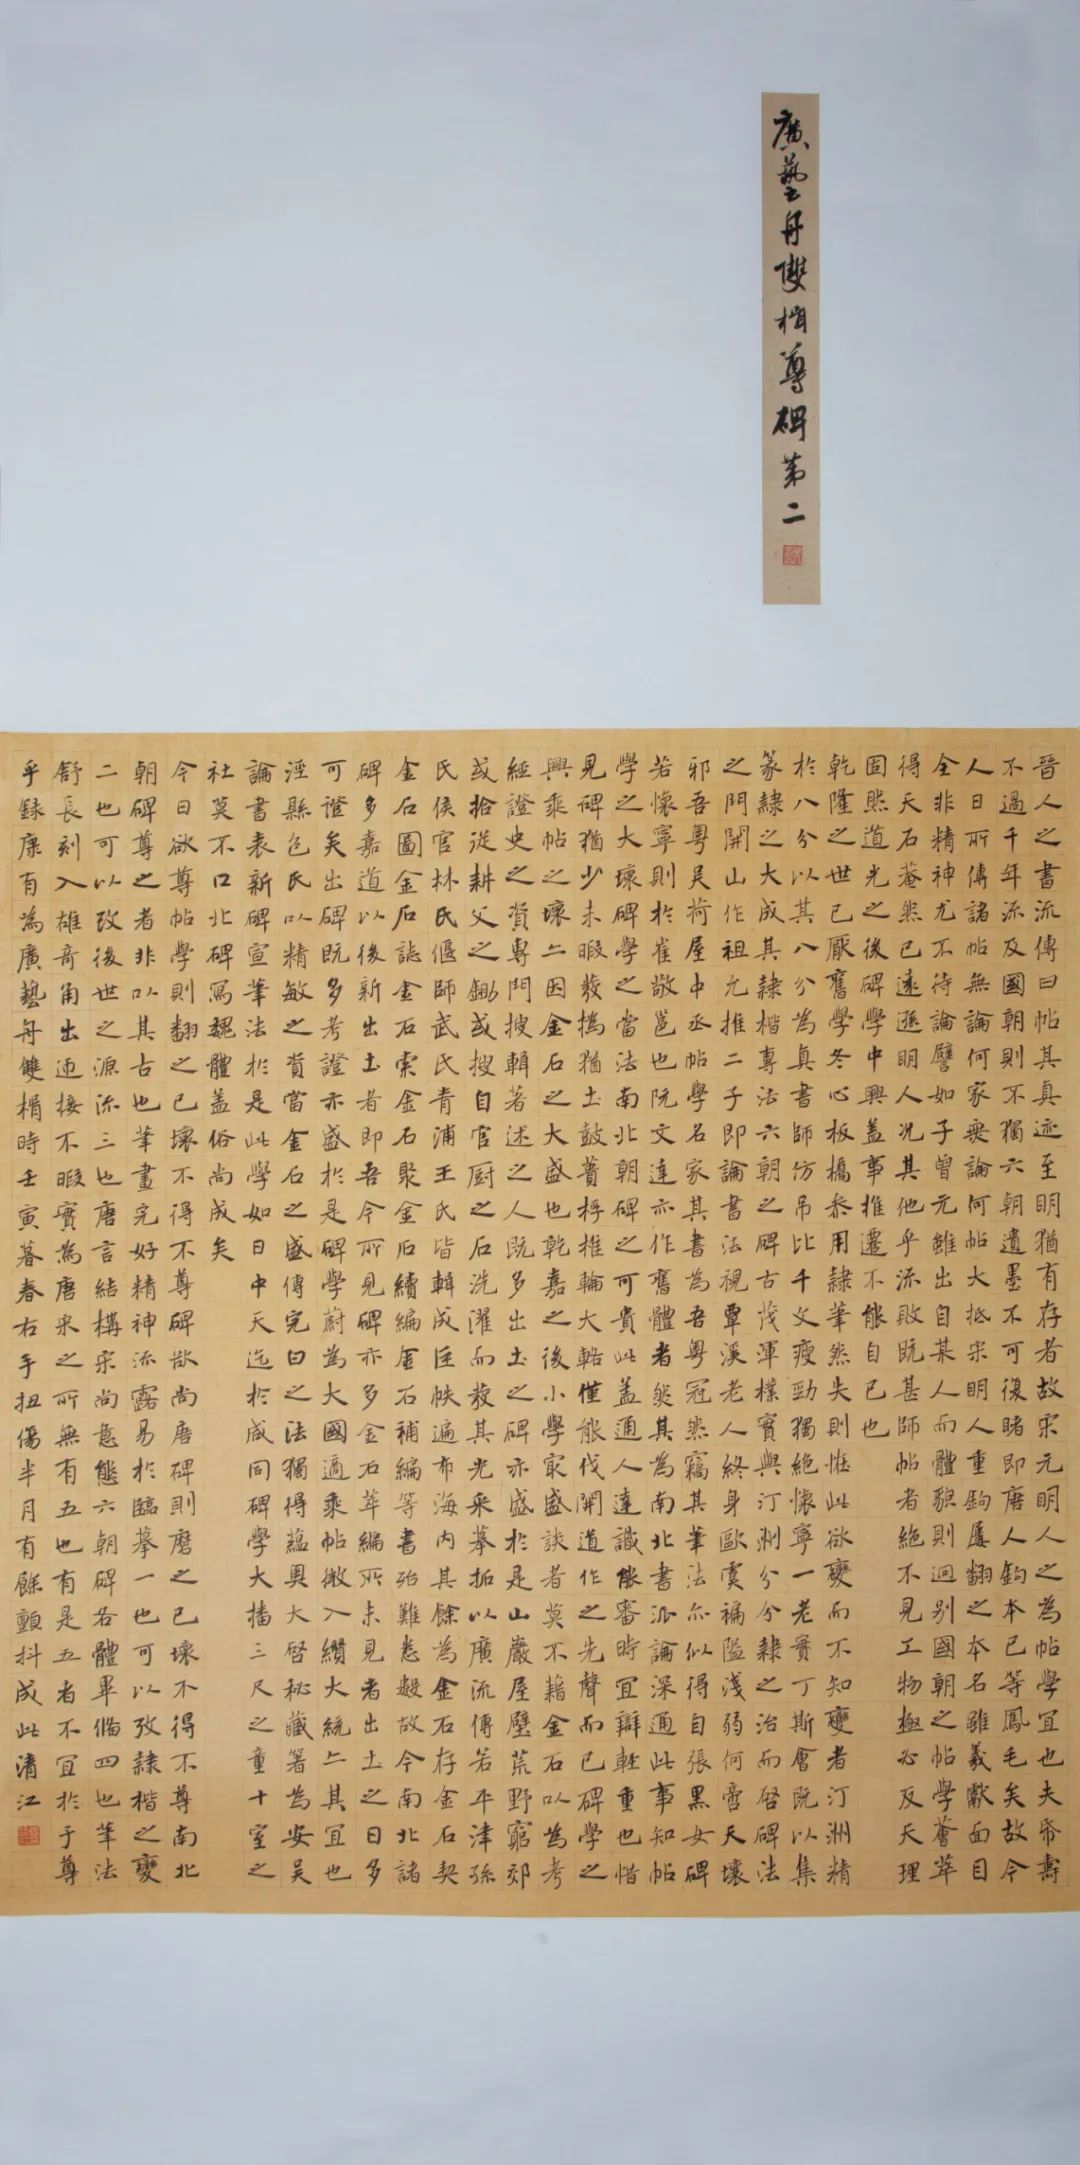 廣藝舟雙楫尊碑第二
晋人之書流傳曰帖其真迹至明猶有存者故宋元明人之為帖學宜也夫帋壽
不過千年流及國朝則不獨六朝遺墨不可復睹即唐人鈎本已等鳳毛矣故今
人日所傳諸帖無論何家無論何帖大抵宋明人重鈎屢翻之本名雖羲獻面目
全非精神尤不待論譬如子曾元雖出自某人而體貌則迥别國朝之帖學薈萃
得天石菴然已遠遜明人況其他乎流敗既甚師帖者絶不見工物極必反天理
固然道光之後碑學中興蓋事推遷不能自已也
乾隆之世已厭舊學冬心板橋参用隸筆然失則恠此欲變而不知變者汀洲精
於八分以其八分為真書師仿吊比干文瘦勁獨絶懷寧一老實丁斯會既以集
篆隸之大成其隸楷專法六朝之碑古茂渾樸實與汀洲分分隸之治而啓碑法
之門開山作祖允推二子即論書法視覃溪老人終身歐虞褊隘淺弱何啻天壤
邪吾粤吴荷屋中丞帖學名家其書為吾粤冠然窺其筆法亦似得自張黑女碑
若懷寧則於崔敬邕也阮文達亦作舊體者然其為南北書派論深通此事知帖
學之大壞碑學之當法南北朝碑之可貴此蓋通人達識能審時宜辯輕重也惜
見碑猶少未暇發撝猶土鼓蕢桴椎輪大輅僅能伐開道作之先聲而已碑學之
興乘帖之壞亦因金石之大盛也乾嘉之後小學最盛談者莫不藉金石以為考
經證史之資專門搜輯著述之人既多出土之碑亦盛於是山巖屋壁荒野窮郊
或拾從耕父之鋤或搜自官厨之石洗濯而發其光采摹拓以廣流傳若平津孫
氏侯官林氏偃師武氏青浦王氏皆輯成巨帙遍布海内其餘為金石存金石契
金石圖金石誌金石索金石聚金石續編金石補編等書殆難悉數故今南北諸
碑多嘉道以後新出土者即吾今所見碑亦多金石萃編所未見者出土之日多
可證矣出碑既多考證亦盛於是碑學蔚為大國適乘帖微入纘大統亦其宜也
涇縣包氏以精敏之資當金石之盛傳完白之法獨得藴奥大啓秘藏著為安吴
論書表新碑宣筆法於是此學如日中天迄於咸同碑學大播三尺之童十室之
社莫不口北碑寫魏體蓋俗尚成矣
今日欲尊帖學則翻之已壞不得不尊碑欲尚唐碑則磨之已壞不得不尊南北
朝碑尊之者非以其古也筆畫完好精神流露易於臨摹一也可以攷隸楷之變
二也可以攷後世之源流三也唐言結構宋尚意態六朝碑各體畢備四也筆法
舒長刻入雄奇角出迎接不暇實為唐宋之所無有五也有是五者不宜於于尊
乎録康有為廣藝舟雙楫時壬寅暮春右手扭傷半月有餘顫抖成此清江